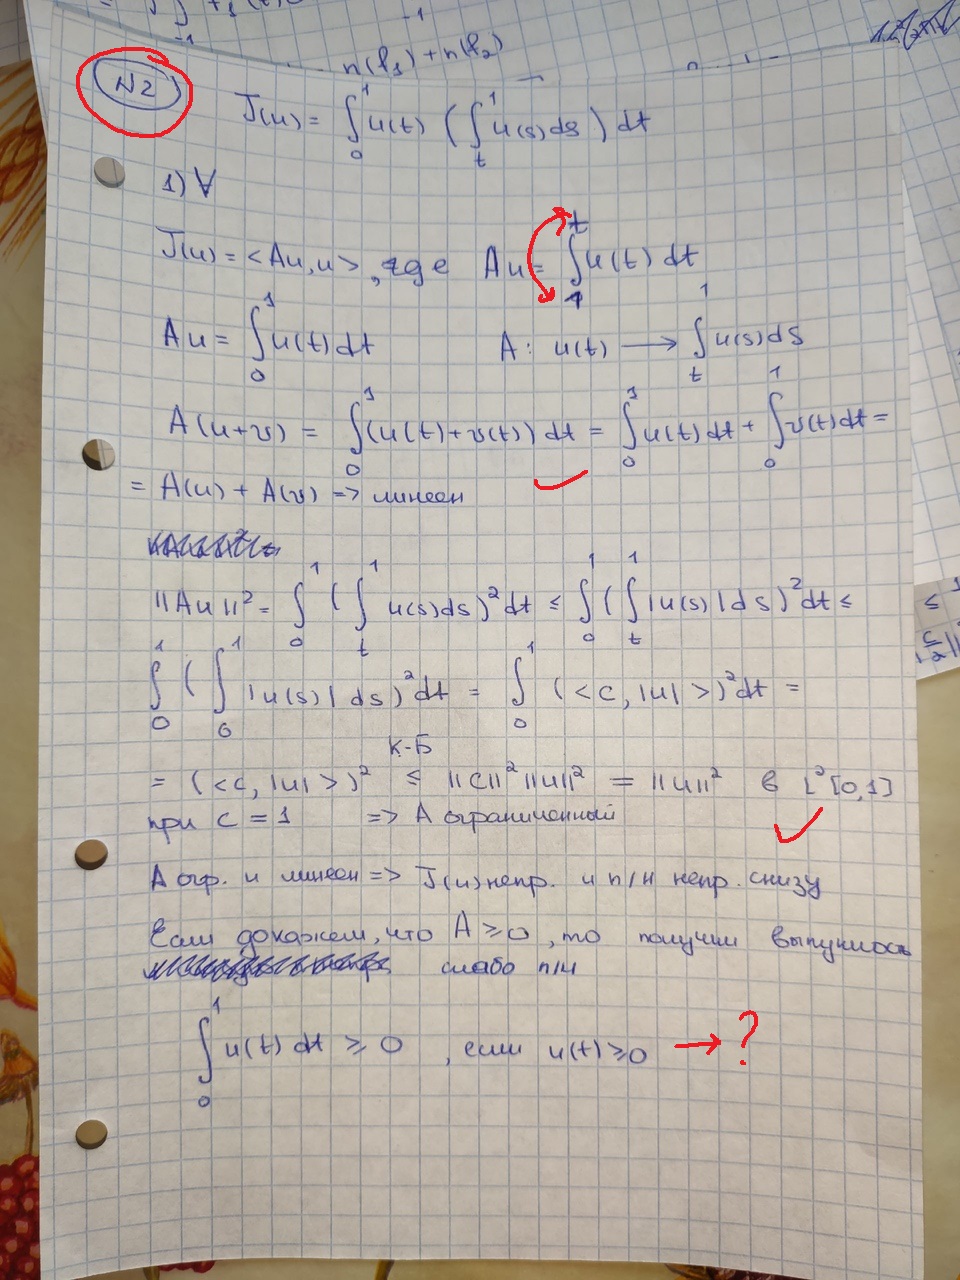 n(f₁) + n(f₂)
N2
J(u) = ∫₀¹ u(t) (∫ₜ¹ u(s)ds) dt
1) ∀
J(u) = <Au, u>, где Au = ∫₁ᵗ u(t) dt
Au = ∫₀¹ u(t)dt A: u(t) → ∫ₜ¹ u(s)ds
A(u+v) = ∫₀¹ (u(t)+v(t)) dt = ∫₀¹ u(t)dt + ∫₀¹ v(t)dt =
= A(u) + A(v) => линеен
||Au||² = ∫₀¹ (∫ₜ¹ u(s)ds)² dt ≤ ∫₀¹ (∫ₜ¹ |u(s)|ds)² dt ≤
∫₀¹ (∫₀¹ |u(s)|ds)² dt = ∫₀¹ (<c, |u|>)² dt =
К-Б
= (<c, |u|>)² ≤ ||c||² ||u||² = ||u||² в L²[0,1]
при c = 1 => A ограниченный
A огр. и линеен => J(u) непр. и п/н непр. снизу
Если докажем, что A ≥ 0, то получим выпуклость
слабо п/н
∫₀¹ u(t) dt ≥ 0, если u(t) ≥ 0 → ?